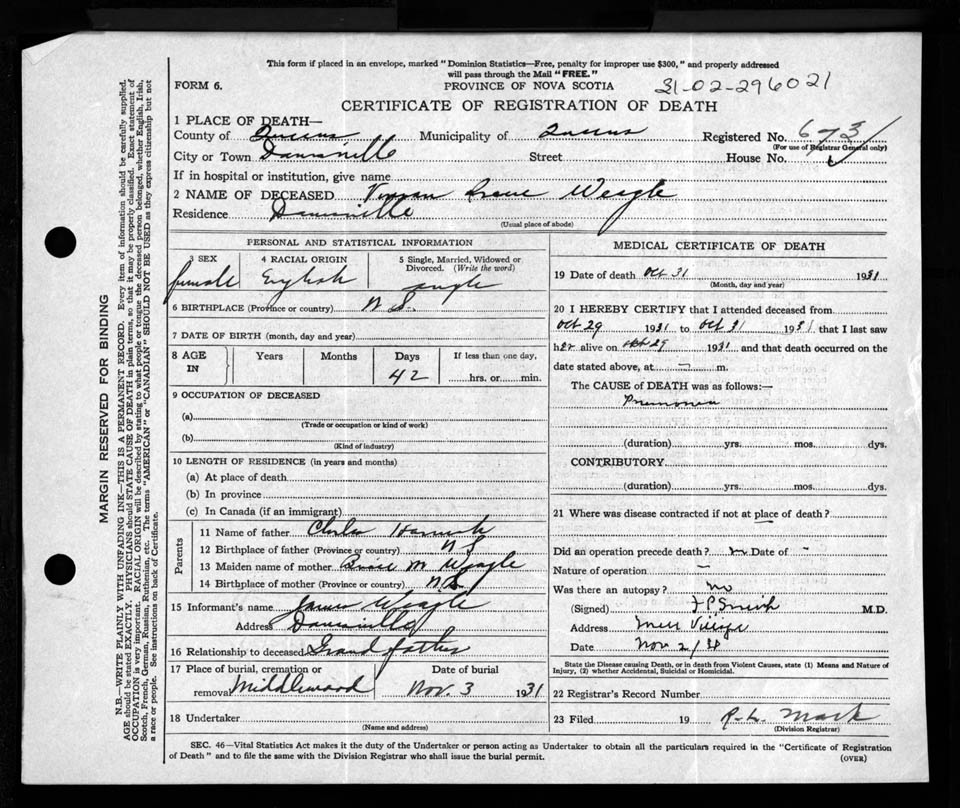 This form if placed in an envelope, marked "Dominion Statistics—Free, penalty for improper use $300," and properly addressed
will pass through the Mail "FREE."
FORM 6.
PROVINCE OF NOVA SCOTIA
31-02-296021
CERTIFICATE OF REGISTRATION OF DEATH
1 PLACE OF DEATH—
County of Queens Municipality of Queens Registered No. 673
(For use of Registrar General only)
City or Town Danesville Street House No.
If in hospital or institution, give name
2 NAME OF DECEASED Weagle
Residence Danesville
(Usual place of abode)
PERSONAL AND STATISTICAL INFORMATION
3 SEX
female
4 RACIAL ORIGIN
English
5 Single, Married, Widowed or Divorced. (Write the word)
single
6 BIRTHPLACE (Province or country) N S.
7 DATE OF BIRTH (month, day and year)
8 AGE IN Years Months Days 42 If less than one day, hrs. or min.
9 OCCUPATION OF DECEASED
(a)
(Trade or occupation or kind of work)
(b)
(Kind of industry)
10 LENGTH OF RESIDENCE (in years and months)
(a) At place of death
(b) In province
(c) In Canada (if an immigrant)
Parents
11 Name of father
12 Birthplace of father (Province or country) N S
13 Maiden name of mother M Weagle
14 Birthplace of mother (Province or country) N.S.
15 Informant's name James Weagle
Address Danesville
16 Relationship to deceased Grand father
17 Place of burial, cremation or removal Middlewood
Date of burial
Nov. 3 1931
18 Undertaker
(Name and address)
MEDICAL CERTIFICATE OF DEATH
19 Date of death Oct 31 1931
(Month, day and year)
20 I HEREBY CERTIFY that I attended deceased from
Oct 29 1931 to Oct 31 1931 that I last saw
her alive on Oct 29 1931 and that death occurred on the
date stated above, at — m.
The CAUSE of DEATH was as follows:—
Pneumonia
(duration) yrs. mos. dys.
CONTRIBUTORY
(duration) yrs. mos. dys.
21 Where was disease contracted if not at place of death?
Did an operation precede death? no Date of -
Nature of operation —
Was there an autopsy? no
(Signed) J P Smith M.D.
Address Mill Village
Date Nov 2/31
State the Disease causing Death, or in death from Violent Causes, state (1) Means and Nature of
Injury, (2) whether Accidental, Suicidal or Homicidal.
22 Registrar's Record Number
23 Filed 19 R. L. Mack
(Division Registrar)
SEC. 46—Vital Statistics Act makes it the duty of the Undertaker or person acting as Undertaker to obtain all the particulars required in the "Certificate of Registration
of Death" and to file the same with the Division Registrar who shall issue the burial permit.
(OVER)
MARGIN RESERVED FOR BINDING
N.B.—WRITE PLAINLY WITH UNFADING INK—THIS IS A PERMANENT RECORD. Every item of information should be carefully supplied.
AGE should be stated EXACTLY. PHYSICIANS should STATE CAUSE OF DEATH in plain terms, so that it may be properly classified. Exact statement of
OCCUPATION is very important. RACIAL ORIGIN will be described by stating to what people or tongue the deceased person belonged, whether English, Irish,
Scotch, French, German, Russian, Ruthenian, etc. The terms "AMERICAN" or "CANADIAN" SHOULD NOT BE USED as they express citizenship but not
a race or people. See instructions on back of Certificate.